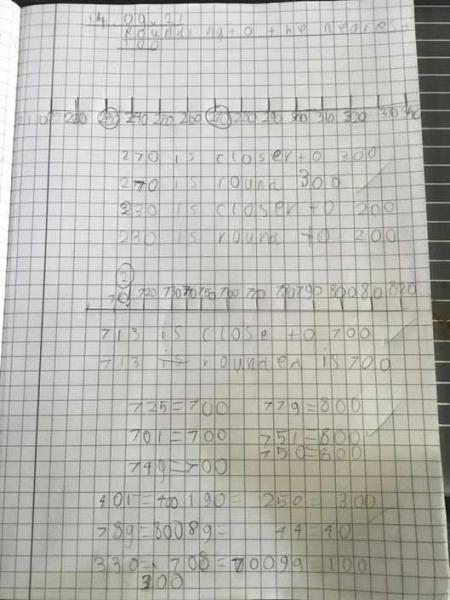 14.09.21
Rounding to the nearest
100
210 220 230 240 250 260 270 280 290 300 310 320 330 340
270 is closer to 300
270 is round 300
230 is closer to 200
230 is round to 200
2
710 720 730 750 700 770 780 790 800 80 820
713 is close to 700
713 is rounded is 700
725=700 779=800
701=700 751=800
750=800
749=700
401=400 190= 250=300
789=800 89= 44=40
330= 708=700 99=100
300